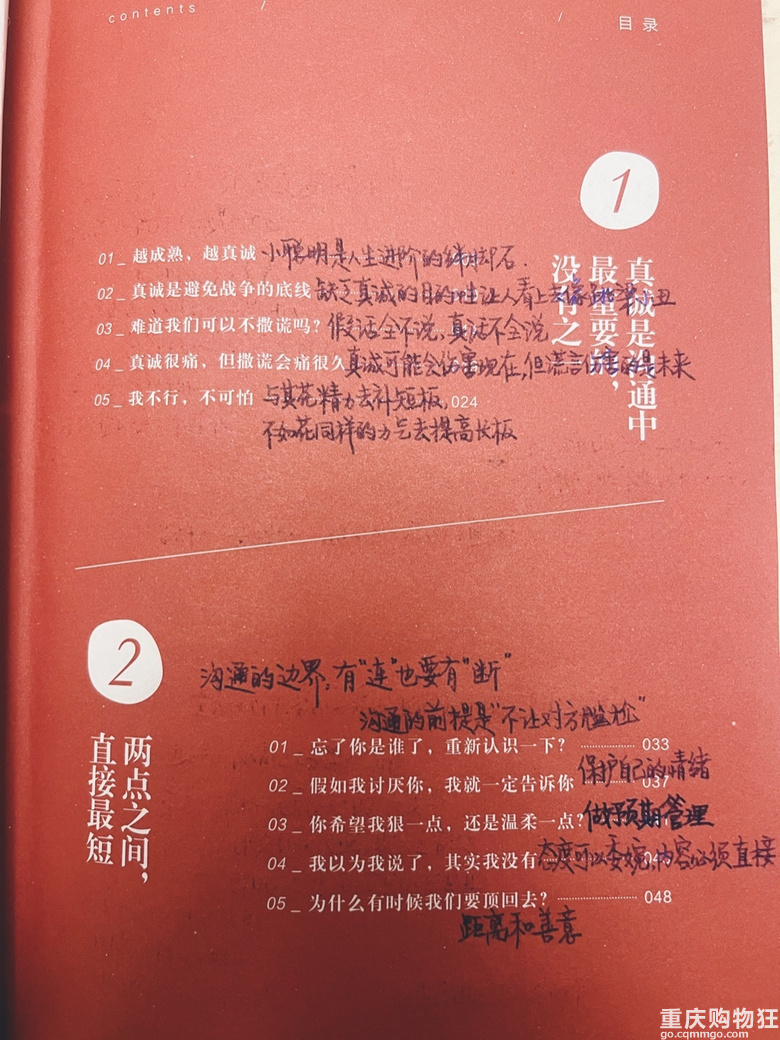 contents / / 目录
1
真诚是沟通中
最重要的,
没有之一
01 _ 越成熟，越真诚 小聪明是人生进阶的绊脚石.
02 _ 真诚是避免战争的底线 缺乏真诚的目的性让人看上去像跳梁小丑
03 _ 难道我们可以不撒谎吗？ 假话全不说,真话不全说
04 _ 真诚很痛，但撒谎会痛很久 真诚可能会伤害现在,但谎言伤害的是未来
05 _ 我不行，不可怕 与其花精力去补短板, 024
不如花同样的力气去提高长板
2
两点之间，
直接最短
沟通的边界:有"连"也要有"断"
沟通的前提是"不让对方尴尬"
01 _ 忘了你是谁了，重新认识一下？ 033
02 _ 假如我讨厌你，我就一定告诉你 037 保护自己的情绪
03 _ 你希望我狠一点，还是温柔一点？ 做好预期管理
04 _ 我以为我说了，其实我没有 态度可以委婉,内容必须直接
05 _ 为什么有时候我们要顶回去？ 048
距离和善意
重庆购物狂
go.cqmmgo.com